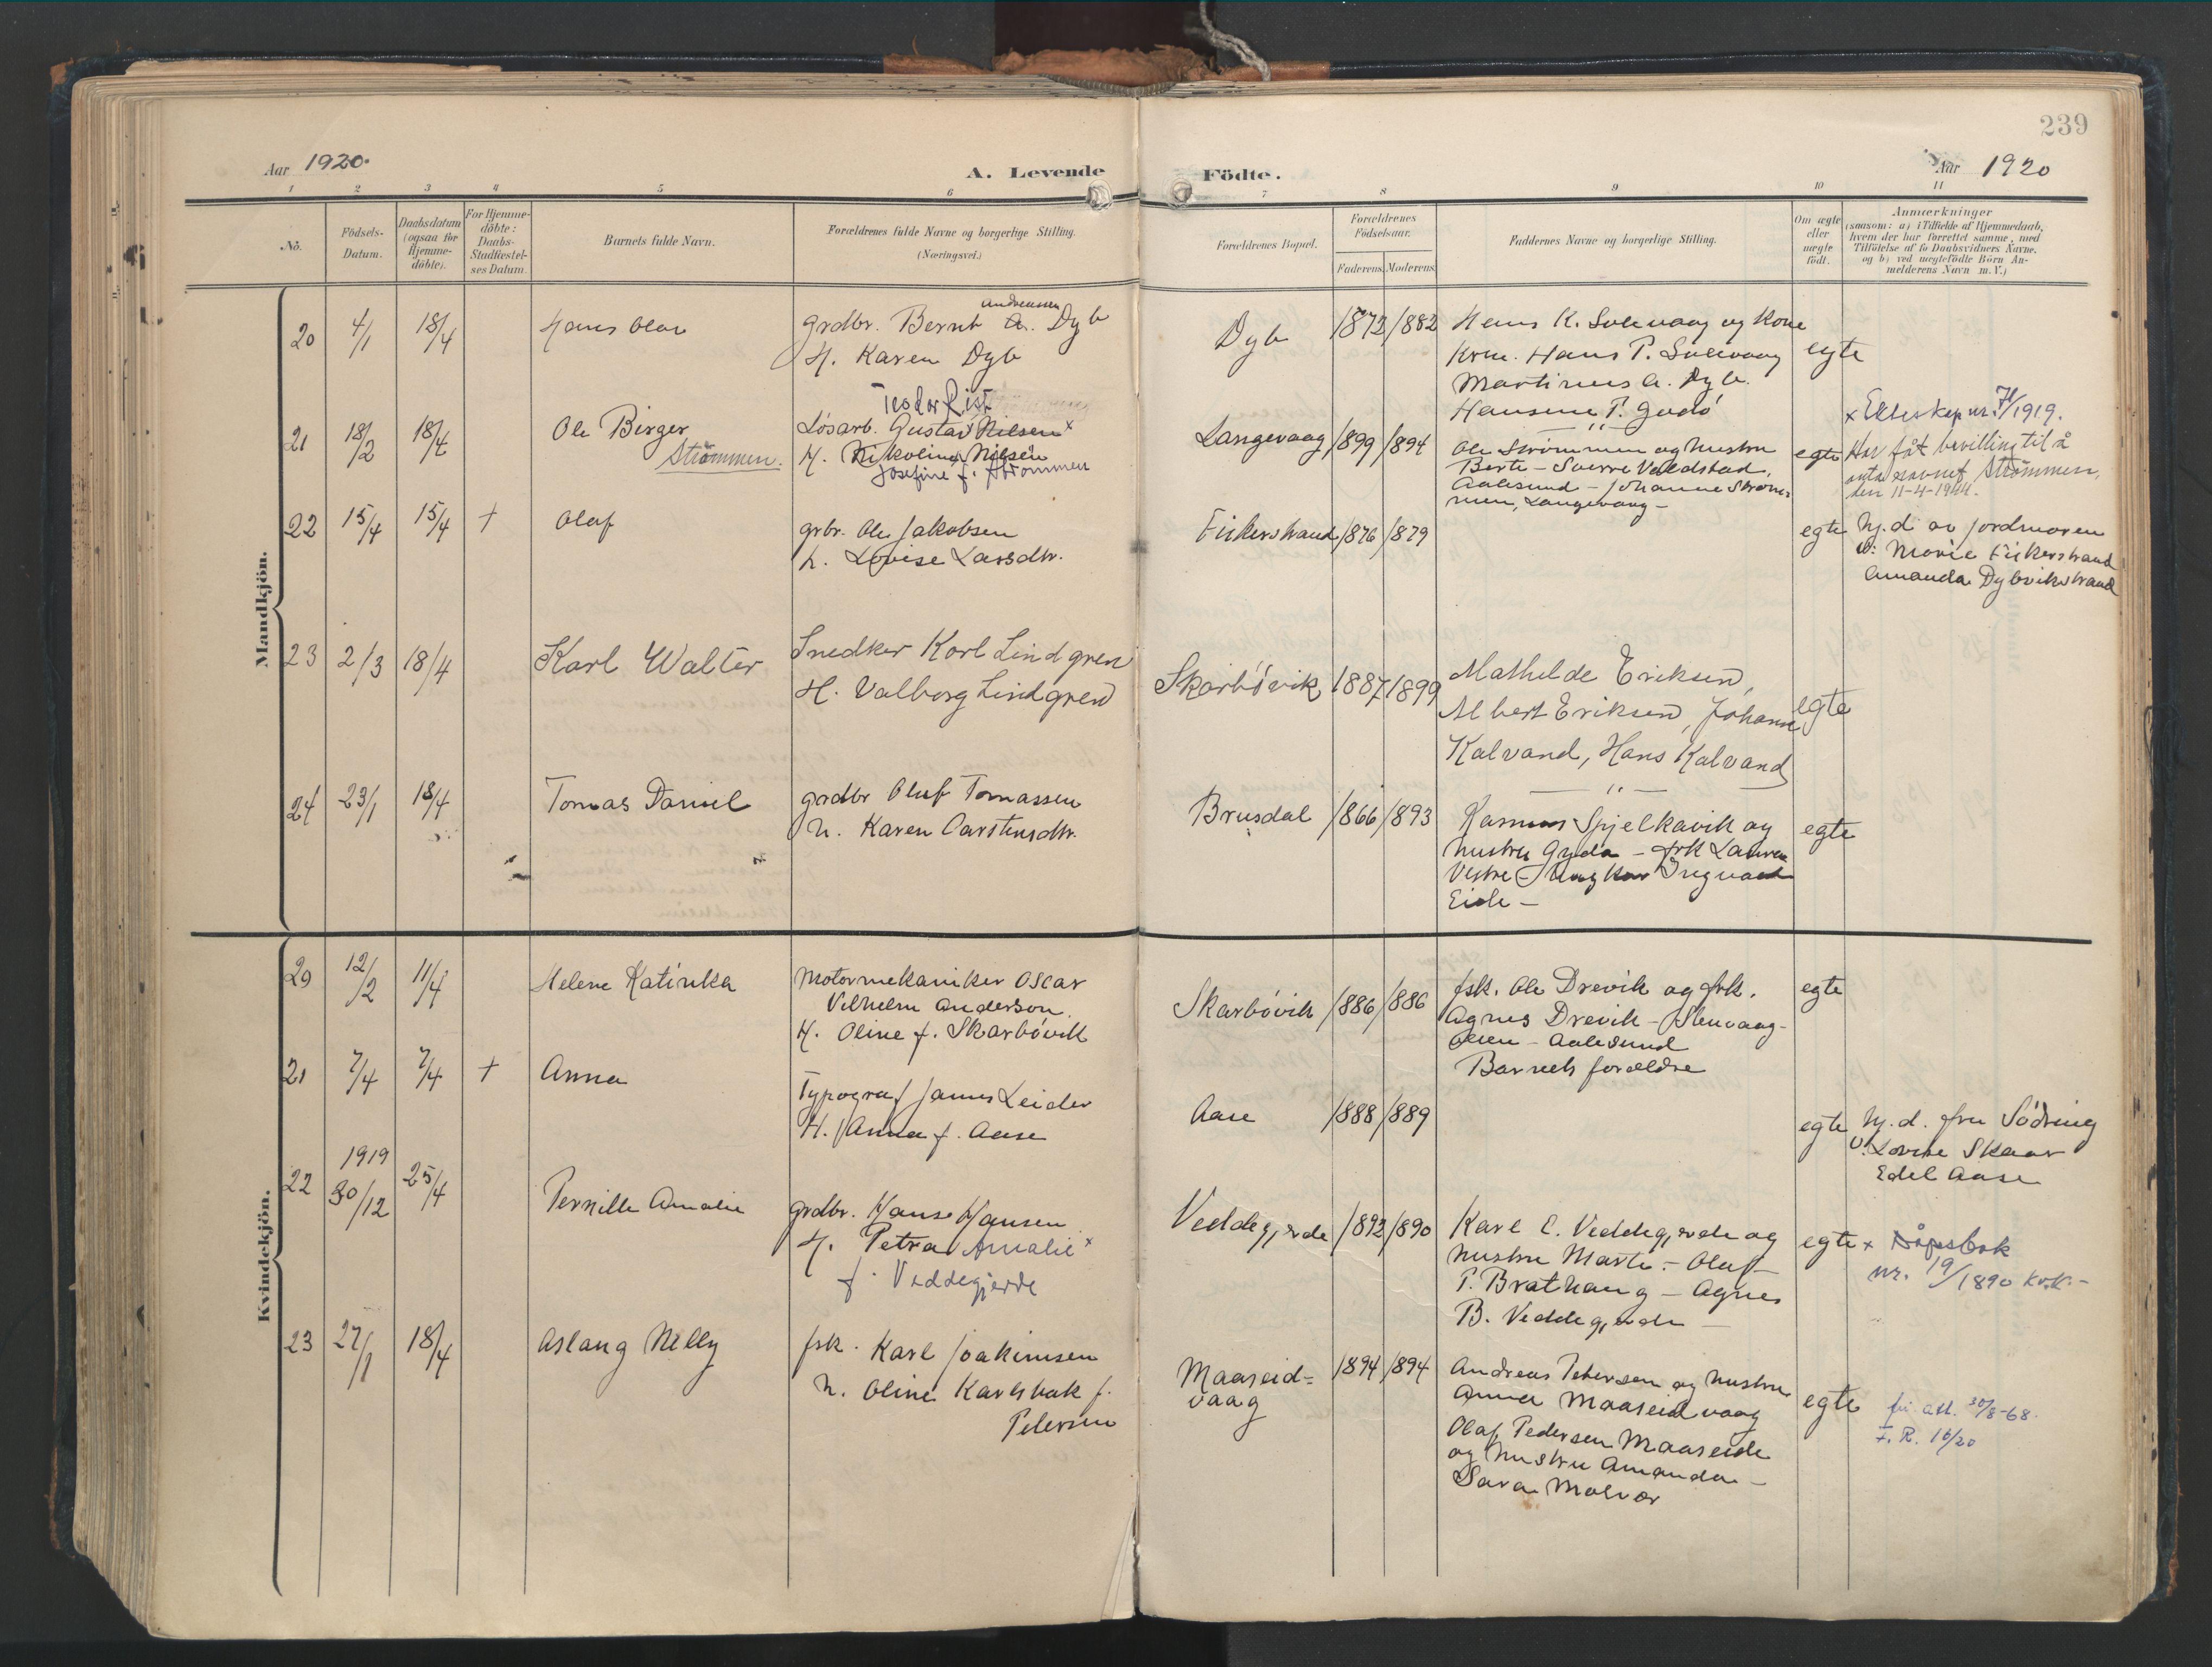 239
Aar 1920.
A. Levende
Födte.
Aar 1920
1 2 3 4 5 6 7 8 9 10 11
Nó.
Födsels-
Datum.
Daabsdatum
(ogsaa for
Hjemme-
döbte).
For Hjemme-
döbte:
Daabs-
Stadfæstel-
ses Datum.
Barnets fulde Navn.
Forældrenes fulde Navne og borgerlige Stilling.
(Næringsvei.)
Forældrenes Bopæl.
Forældrenes
Födselsaar.
Faderens. Moderens.
Faddernes Navne og borgerlige Stilling.
Om ægte
eller
uægte
födt.
Anmærkninger
(saasom: a) i Tilfælde af Hjemmedaab,
hvem der har forrettet samme, med
Tilföielse af to Daabsvidners Navne.
og b) ved uegtefödte Börn An-
melderens Navn m. V.)
Mandkjön.
20 4/1 18/4 Hans Olav
Andreassen
grdbr. Bernt A. Dyb
H. Karen Dyb
Dyb 1872 1882
Hans K. Sulevaag og Kone
Krm. Hans P. Sulevaag
Martinus A. Dyb.
Hansine P. Godö
egte
21 18/2 18/4 Ole Birger
Strømmen.
Teodor Rist
Løsarb. Gustav Nilsen x
H. Nikoline Nilsen
Josefine f. Strømmen
Langevaag 1899 1894
Ole Strømmen og hustru
Berte - Sverre Valdstad,
Aalesund - Johanne Strøm-
men, Langevaag -
egte
x Ekteskap nr. 7/1919.
Har fåt bevilling til å
anta navnet Strømmen,
den 11-4-1944.
22 15/4 15/4 + Olaf
grbr. Ole Jakobsen
h. Lovise Larsdtr.
Fiskerstrand 1876 1879
egte
Hj.d. av jordmoren
v: Marie Fiskerstrand
Amanda Dybvikstrand
23 2/3 18/4 Karl Walter
Snedker Karl Lindgren
H. Valborg Lindgren
Skarbövik 1887 1899
Mathilde Eriksen,
Albert Eriksen, Johanne
Kalvand, Hans Kalvand
egte
24 23/1 18/4 Tomas Daniel
grdbr Oluf Tomassen
h. Karen Carstensdtr.
Brusdal 1866 1893
Rasmus Spjelkavik og
hustru Gyda - frk Laura
Vestre - Ungkar Ingvald
Eide -
egte
Kvindekjön.
20 12/2 11/4 Helene Katinka
Motormekaniker Oscar
Vilhelm Anderson.
H. Oline f. Skarbövik
Skarbövik 1886 1886
fsk. Ole Drevik og frk.
Agnes Drevik - Stenvaag-
Olsen - Aalesund
Barnets forældre
egte
21 7/4 7/4 + Anna
Typograf James Leider
H. Anna f. Aase
Aase 1888 1889
egte
Hj.d. fru Södring
v. Lovise Skaar
Edel Aase
22 1919
30/12 25/4 Pernille Amalie
grdbr. Hans Hansen
H. Petra Amalie x
f. Veddegjerde
Veddegjerde 1892 1890
Karl E. Veddegjerde og
hustru Marte. - Olaf
P. Brathaug - Agnes
B. Veddegjerde -
egte
x Dåpsbok
nr. 19/1890 kvk.-
23 27/1 18/4 Aslaug Nelly
fsk. Karl Joakimsen
h. Oline Karlsbak f.
Petersen
Maaseid-
vaag
1894 1894
Andreas Petersen og hustru
Anna Maaseidvaag
Olaf Pedersen Maaseide
og hustru Amanda -
Sara Molvær
egte
fø. att. 30/8-68.
F. R. 16/20